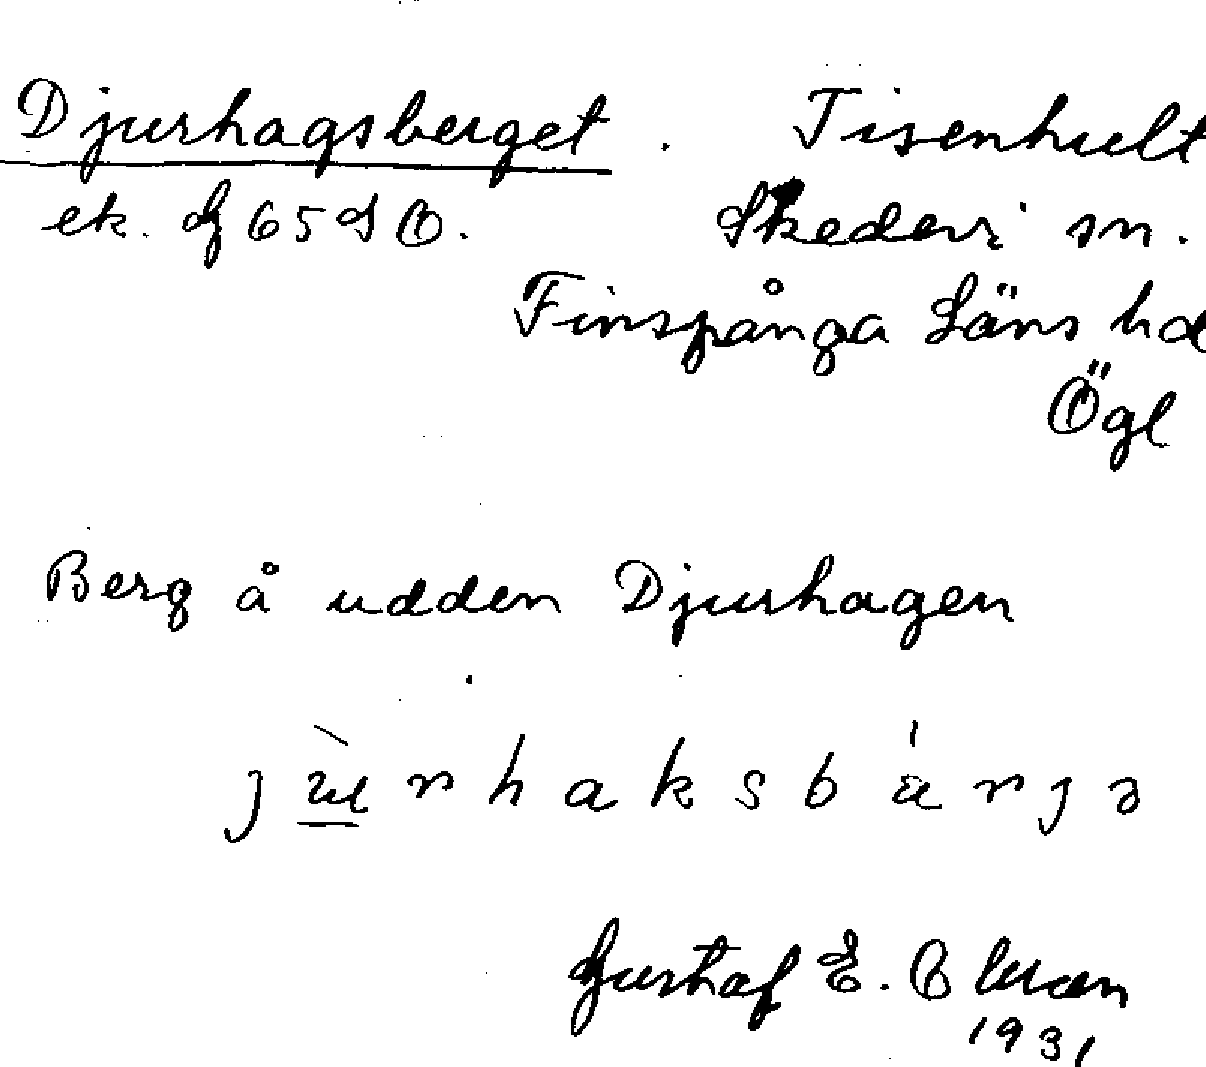 Djurhagsberget. Tisenhult
ek. G 65 S O. Skedevi sn.
Finspånga Läns hd
Ögl
Berg å udden Djurhagen
j ù̲ r h a k s b á r j ə
Gustaf E.
1931